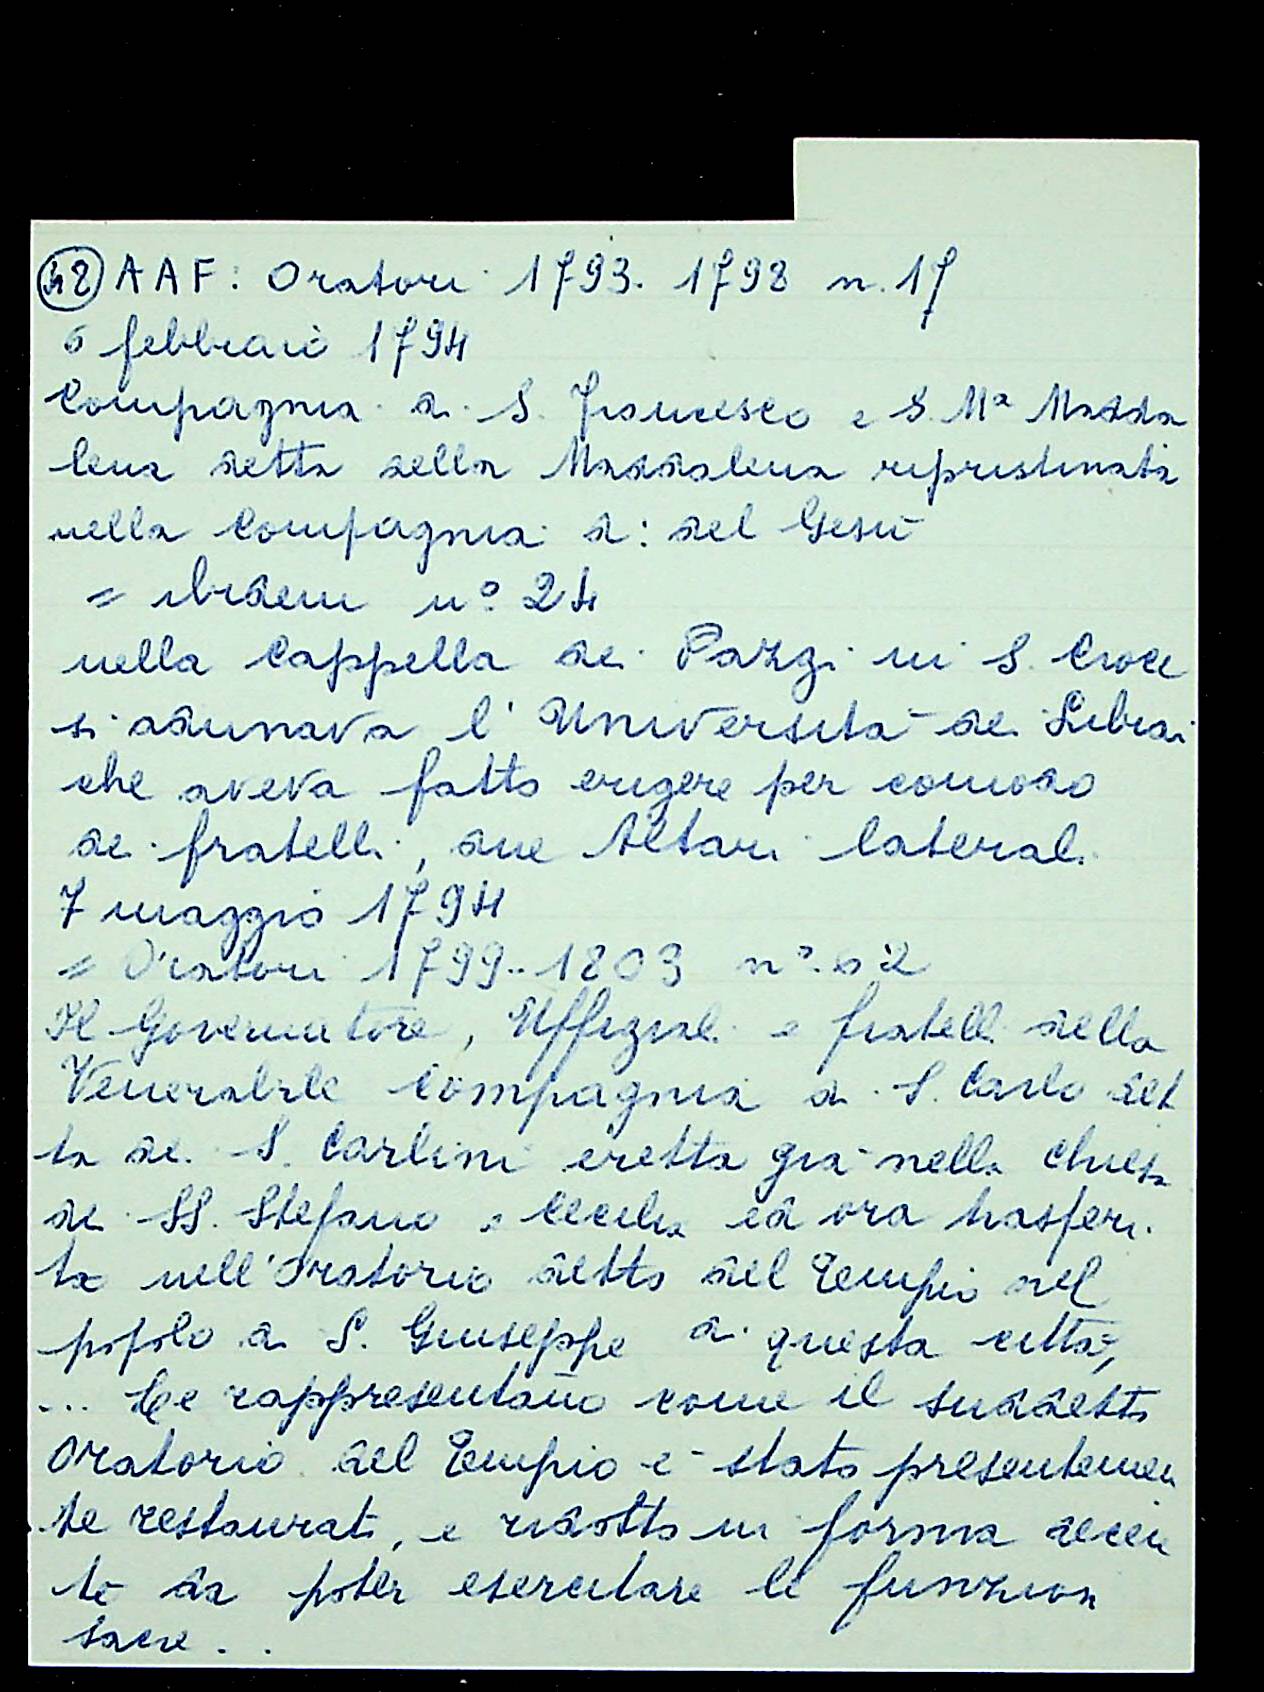 48 AAF: Oratori 1793. 1798 n. 17
6 febbraio 1794
Compagnia di S. Francesco e S. Mª Madda
lena detta della Maddalena ripristinata
nella Compagnia d: del Gesù
= ibidem nº 24
nella Cappella dei Pazzi in S. Croce
si adunava l'Università dei Librai
che aveva fatto erigere per comodo
dei fratelli, due Altari laterali
7 maggio 1794
= Oratori 1799..1803 nº. 62
Il Governatore, Uffiziali e fratelli della
Venerabile Compagnia di S. Carlo det
ta dei S. Carlini eretta già nella chiesa
dei SS. Stefano e Cecilia ed ora trasferi.
ta nell'Oratorio detto del Tempio nel
popolo di S. Giuseppe di questa città,
... Le rappresentano come il suddetto
Oratorio del Tempio è stato presentemen
te restaurato, e ridotto in forma decen
te da poter esercitare le funzioni
sacre . .